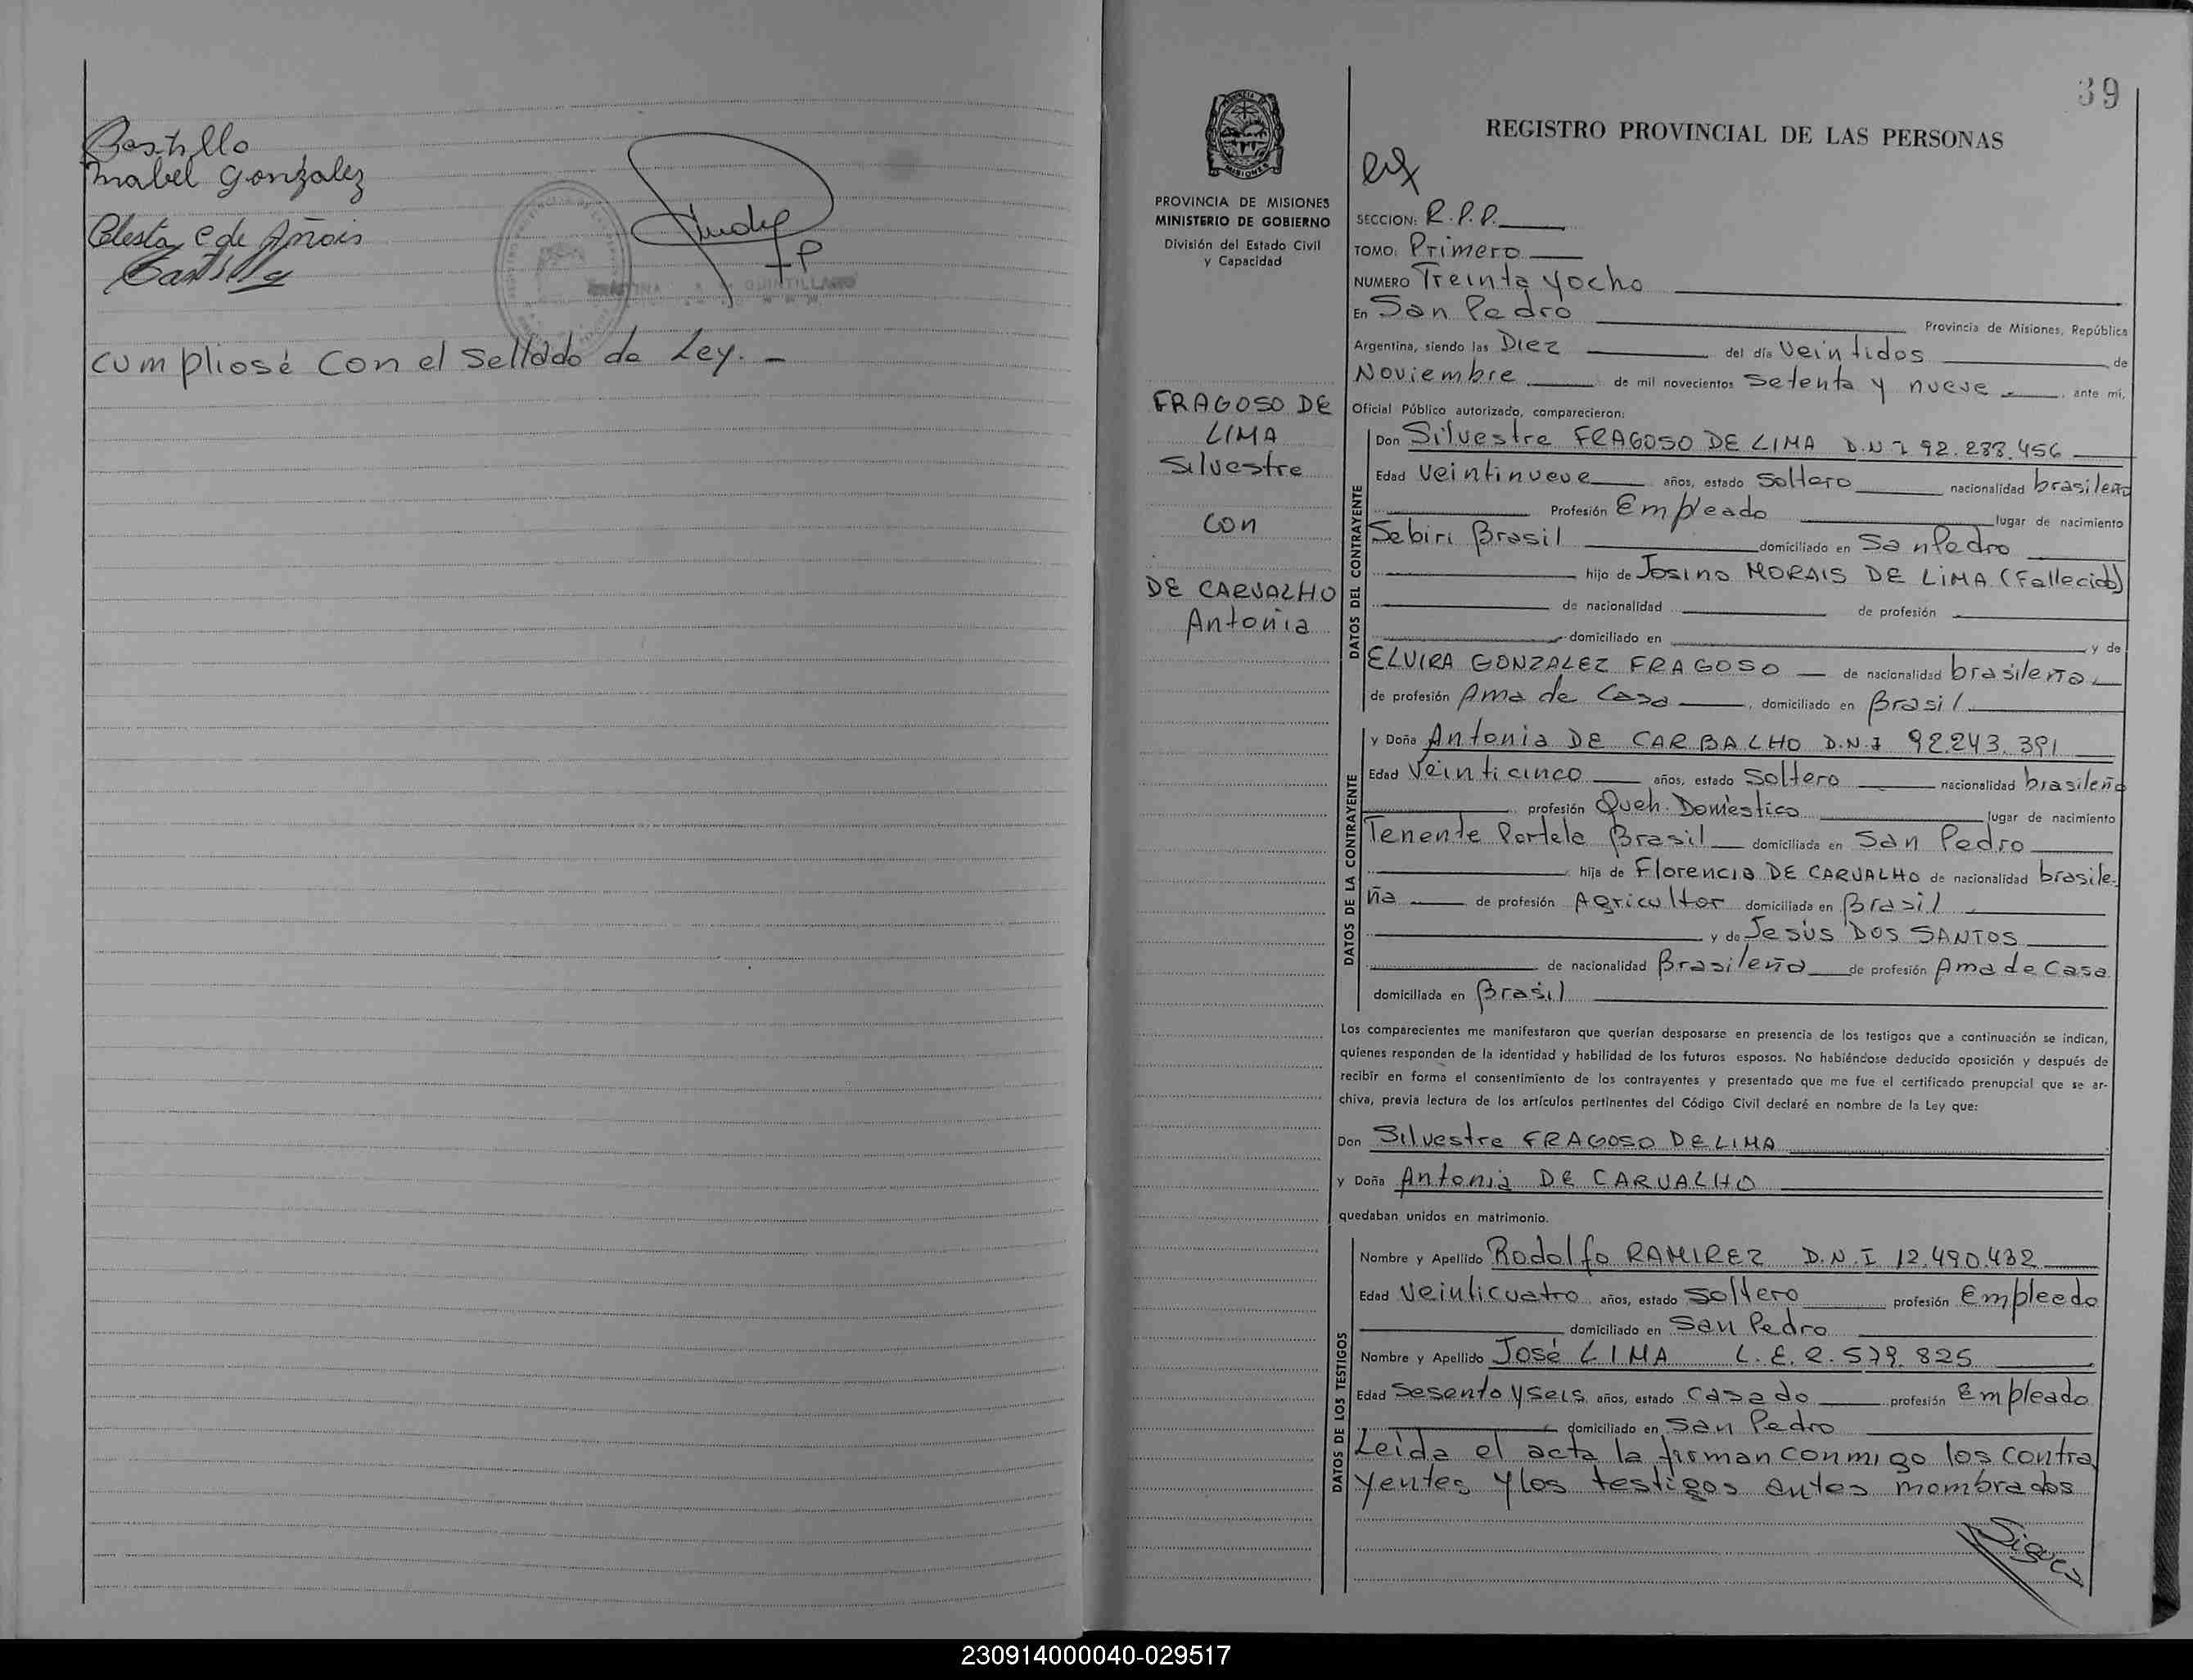 Castillo
Mabel Gonzalez
Castillo
cumpliosé con el Sellado de Ley. -
39
REGISTRO PROVINCIAL DE LAS PERSONAS
PROVINCIA DE MISIONES
MINISTERIO DE GOBIERNO
División del Estado Civil
y Capacidad
FRAGOSO DE
LIMA
Silvestre
con
DE CARVALHO
Antonia
SECCION: R.P.P.
TOMO: Primero
NUMERO Treinta y ocho
En San Pedro Provincia de Misiones, República
Argentina, siendo las Diez del día Veintidos de
Noviembre de mil novecientos Setenta y nueve, ante mí,
Oficial Público autorizado, comparecieron:
DATOS DEL CONTRAYENTE
Don Silvestre FRAGOSO DE LIMA D.N I 92.288.456
Edad Veintinueve años, estado Soltero nacionalidad brasileño
Profesión Empleado lugar de nacimiento
Sebiri Brasil domiciliado en San Pedro
hijo de Josino MORAIS DE LIMA (Fallecido)
de nacionalidad de profesión
domiciliado en y de
ELVIRA GONZALEZ FRAGOSO de nacionalidad brasileña
de profesión Ama de Casa, domiciliado en Brasil
DATOS DE LA CONTRAYENTE
y Doña Antonia DE CARBALHO D.N.I 92.243.391
Edad Veinticinco años, estado Soltero nacionalidad brasileña
profesión Queh. Doméstico lugar de nacimiento
Tenente Portela Brasil domiciliada en San Pedro
hija de Florencio DE CARVALHO de nacionalidad brasile-
ña de profesión Agricultor domiciliada en Brasil
y de Jesús DOS SANTOS
de nacionalidad Brasileña de profesión Ama de Casa
domiciliada en Brasil
Los comparecientes me manifestaron que querían desposarse en presencia de los testigos que a continuación se indican,
quienes responden de la identidad y habilidad de los futuros esposos. No habiéndose deducido oposición y después de
recibir en forma el consentimiento de los contrayentes y presentado que me fue el certificado prenupcial que se ar-
chiva, previa lectura de los artículos pertinentes del Código Civil declaré en nombre de la Ley que:
Don Silvestre FRAGOSO DE LIMA
y Doña Antonia DE CARVALHO
quedaban unidos en matrimonio.
DATOS DE LOS TESTIGOS
Nombre y Apellido Rodolfo RAMIREZ D.N.I 12.490.432
Edad Veinticuatro años, estado Soltero profesión Empleado
domiciliado en San Pedro
Nombre y Apellido José LIMA L.E. 2.579.825
Edad Sesenta y Seis años, estado Casado profesión Empleado
domiciliado en San Pedro
Leida el acta la firman conmigo los contra
yentes y los testigos antes mombrados
Sigue
230914000040-029517